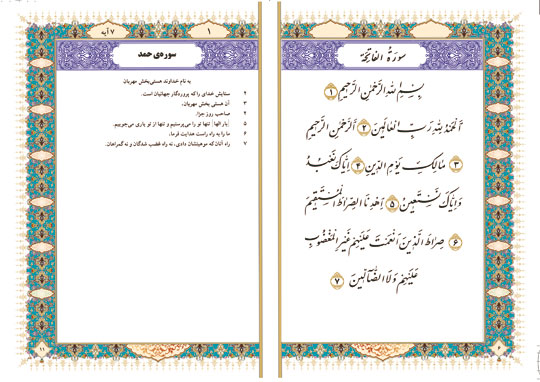 سورة الفاتحة
بِسْمِ اللهِ الرَّحْمٰنِ الرَّحِیمِ ۱
اَلْحَمْدُ لِلّٰهِ رَبِّ الْعَالَمِینَ ۲ اَلرَّحْمٰنِ الرَّحِیمِ
۳ مَالِکِ یَوْمِ الدِّینِ ۴ اِیَّاکَ نَعْبُدُ
وَاِیَّاکَ نَسْتَعِینُ ۵ اِهْدِنَا الصِّرَاطَ الْمُسْتَقِیمَ
۶ صِرَاطَ الَّذِینَ اَنْعَمْتَ عَلَیْهِمْ غَیْرِ الْمَغْضُوبِ
عَلَیْهِمْ وَلَا الضَّالِّینَ ۷
۶
۱ ۷ آیه
سوره‌ی حمد
به نام خداوند هستی‌بخش مهربان
۲ ستایش خدای را که پروردگار جهانیان است.
۳ آن هستی بخش مهربان.
۴ صاحب روز جزا.
۵ [بار الها] تنها تو را می‌پرستیم و تنها از تو یاری می‌جوییم.
۶ ما را به راه راست هدایت فرما.
۷ راه آنان که موهبتشان دادی، نه راه غضب شدگان و نه گمراهان.